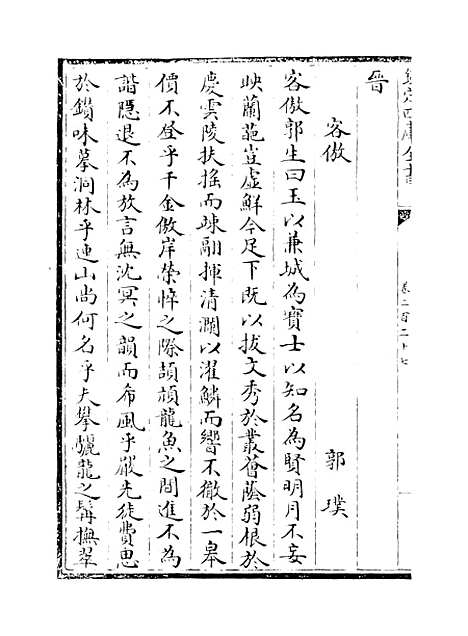 欽定四庫全書
卷二百二十七
晉
客傲
郭璞
客傲郭生曰玉以兼城為寶士以知名為賢明月不妄
映蘭葩豈虛鮮今足下既以拔文秀於叢薈蔭弱根於
慶雲陵扶搖而竦翮揮清瀾以濯鱗而響不徹於一皋
價不登乎千金傲岸榮悴之際頡頏龍魚之間進不為
諧隱退不為放言無沈冥之韻而希風乎嚴先徒費思
於鑽味摹洞林乎連山尚何名乎夫攀驪龍之髯撫翠